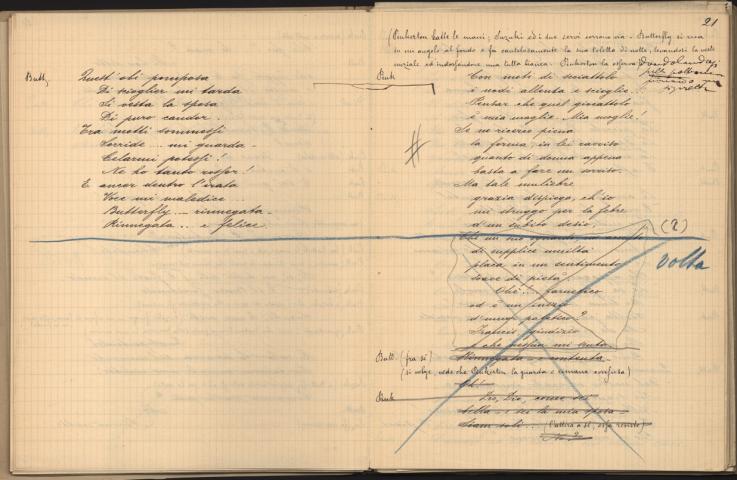 Butt,
Quest' obi pomposa
Di scioglier mi tarda
Si vesta la sposa
Di puro candor.
Tra motti sommessi
Sorride... mi guarda-
Celarmi potessi!
Ne ho tanto rossor!
E ancor dentro l'irata
Voce mi maledice
Butterfly... rinnegata-
Rinnegata... e felice.
21
(Pinkerton batte le mani; Suzuki ed i due servi corrono via - Butterfly si reca
in un angolo al fondo e fa cautelosamente la sua toletta di notte, levandosi la veste
nuziale ed indossandone una tutta bianca. Pinkerton la osserva
Pink
Con moti di scoiattolo
i nodi allenta e scioglie!
Pensar che quel giocattolo
è mia moglie. Mia moglie!
Se ne ricerco piena
la forma, in lei ravviso
quanto di donna appena
basta a fare un sorriso.
Ma tale muliebre
grazia dispiega, ch'io
mi struggo per la febre
d'un subito desio.
(2)
volta
di supplice umiltà
placa in un sentimento
soave di pietà.
Ohè!
od è un
d'umor
Francis giudizio
Butt. (fra sè) Rinnegata - e contenta -
(si volge, vede che Pinkerton la guarda e rimane confusa)
Oh!
Pink
bella - sei la mia sposa -
Siam soli...